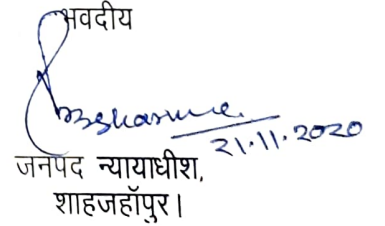 भवदीय
21.11.2020
जनपद न्यायाधीश,
शाहजहॉपुर।